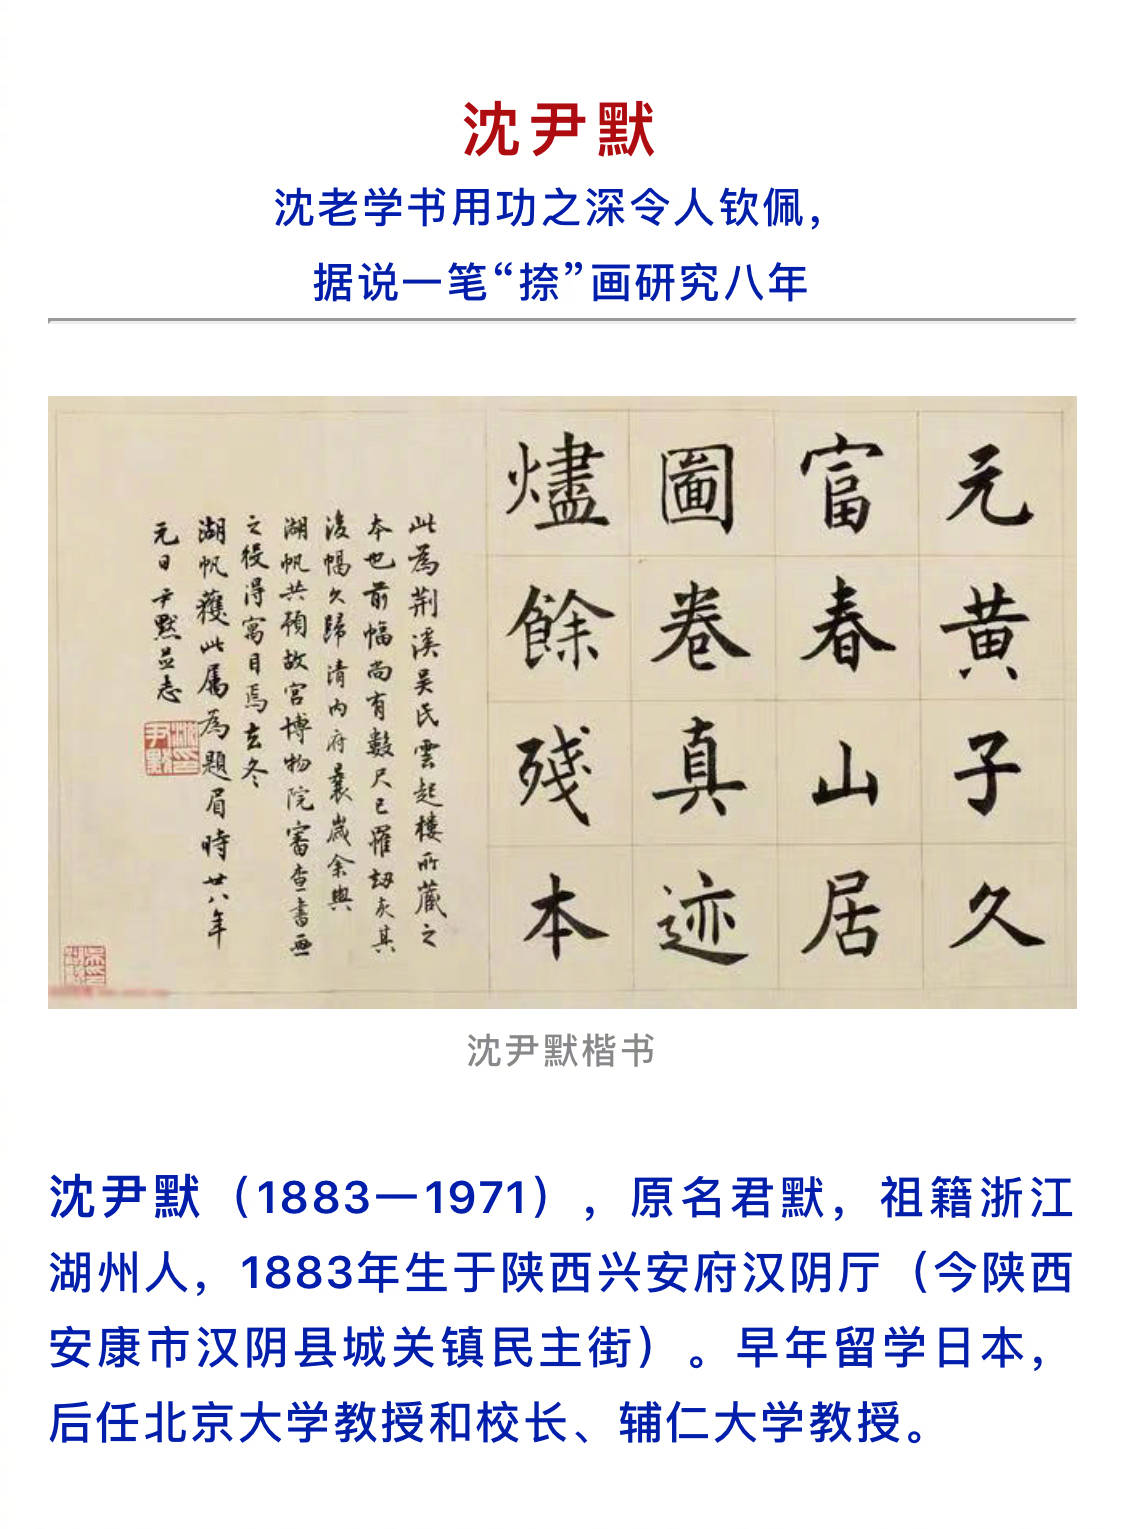 沈尹默
沈老学书用功之深令人钦佩，
据说一笔“捺”画研究八年
元黄子久
富春山居
圖卷真迹
燼餘殘本
此為荆溪吴氏雲起樓所藏之
本也前幅尚有數尺已罹劫灰其
後幅久歸清内府曩歲余與
湖帆共預故宫博物院審查書画
之役得寓目焉玄冬
湖帆獲此属為題眉時廿八年
元日尹默並志
沈尹默楷书
沈尹默（1883—1971），原名君默，祖籍浙江
湖州人，1883年生于陕西兴安府汉阴厅（今陕西
安康市汉阴县城关镇民主街）。早年留学日本，
后任北京大学教授和校长、辅仁大学教授。